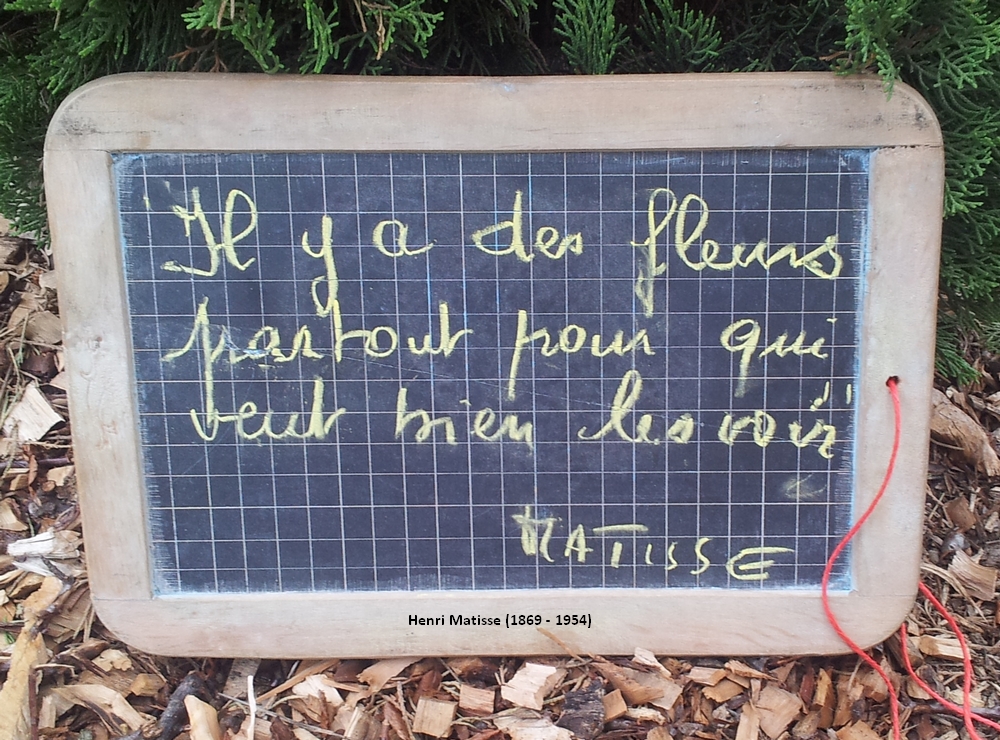 "Il y a des fleurs
partout pour qui
veut bien les voir"
MATISSE
Henri Matisse (1869 - 1954)